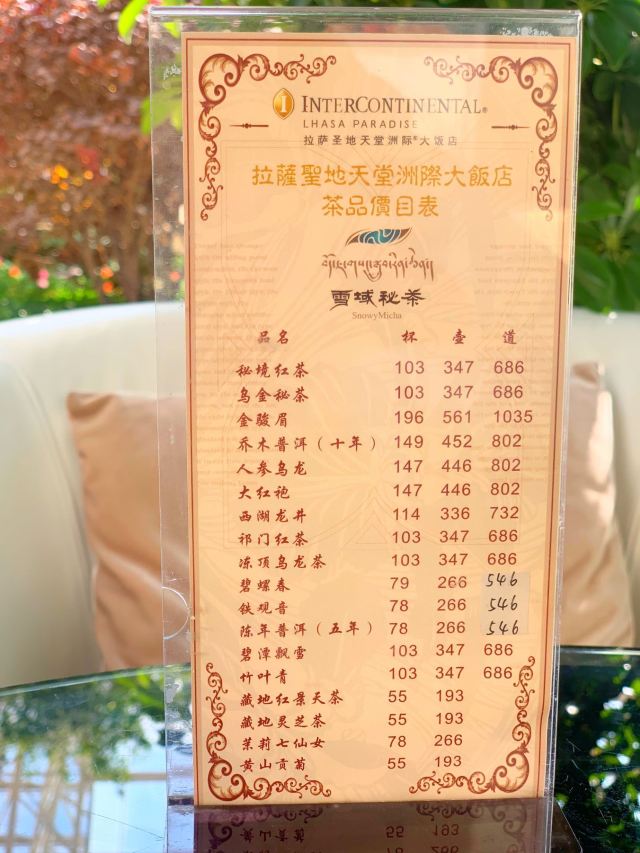 INTERCONTINENTAL®
LHASA PARADISE
拉萨圣地天堂洲际®大饭店
拉薩聖地天堂洲際大飯店
茶品價目表
雪域秘茶
SnowyMicha
品名 杯 壶 道
秘境红茶 103 347 686
乌金秘茶 103 347 686
金骏眉 196 561 1035
乔木普洱（十年） 149 452 802
人参乌龙 147 446 802
大红袍 147 446 802
西湖龙井 114 336 732
祁门红茶 103 347 686
冻顶乌龙茶 103 347 686
碧螺春 79 266 546
铁观音 78 266 546
陈年普洱（五年） 78 266 546
碧潭飘雪 103 347 686
竹叶青 103 347 686
藏地红景天茶 55 193
藏地灵芝茶 55 193
茉莉七仙女 78 266
黄山贡菊 55 193